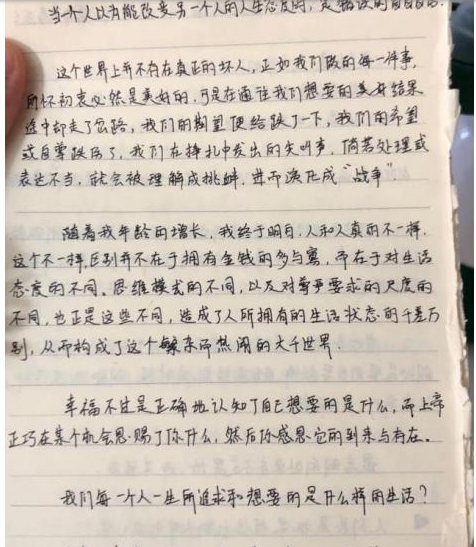 当一个人以为能改变另一个人的人生态度时,是错误的
这个世界上并不存在真正的坏人,正如我们做的每一件事,
所怀初衷必然是美好的,可是在通往我们想要的美好结果
途中却走了岔路,我们的期望便给跌了一下,我们的希望
或自尊跌伤了,我们在挣扎中发出的尖叫声,倘若处理或
表达不当,就会被理解成挑衅,进而演化成“战争”
随着我年龄的增长,我终于明白,人和人真的不一样,
这个不一样,区别并不在于拥有金钱的多与寡,而在于对生活
态度的不同、思维模式的不同,以及对尊严要求的尺度的
不同,也正是这些不同,造成了人所拥有的生活状态的千差万
别,从而构成了这个繁杂而热闹的大千世界.
幸福不过是正确地认知了自己想要的是什么,而上帝
正巧在某个机会恩赐了你什么,然后你感恩它的到来与存在。
我们每一个人一生所追求和想要的是什么样的生活?